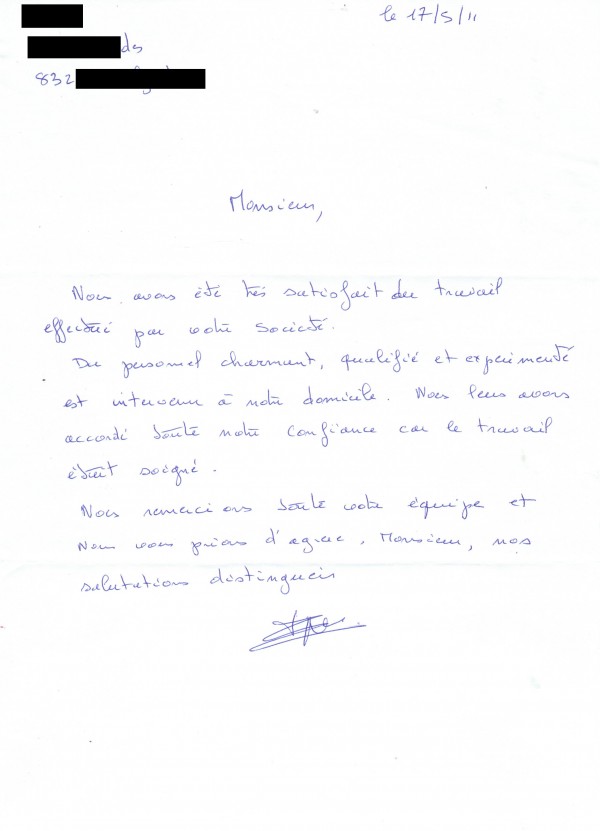 le 17/5/11
des
832
Monsieur,
Nous avons été très satisfait du travail
effectué par votre Société.
Du personnel charmant, qualifié et expérimenté
est intervenu à notre domicile. Nous leurs avons
accordé toute notre confiance car le travail
était soigné.
Nous remercions toute votre équipe et
Nous vous prions d'agréer, Monsieur, nos
salutations distinguées